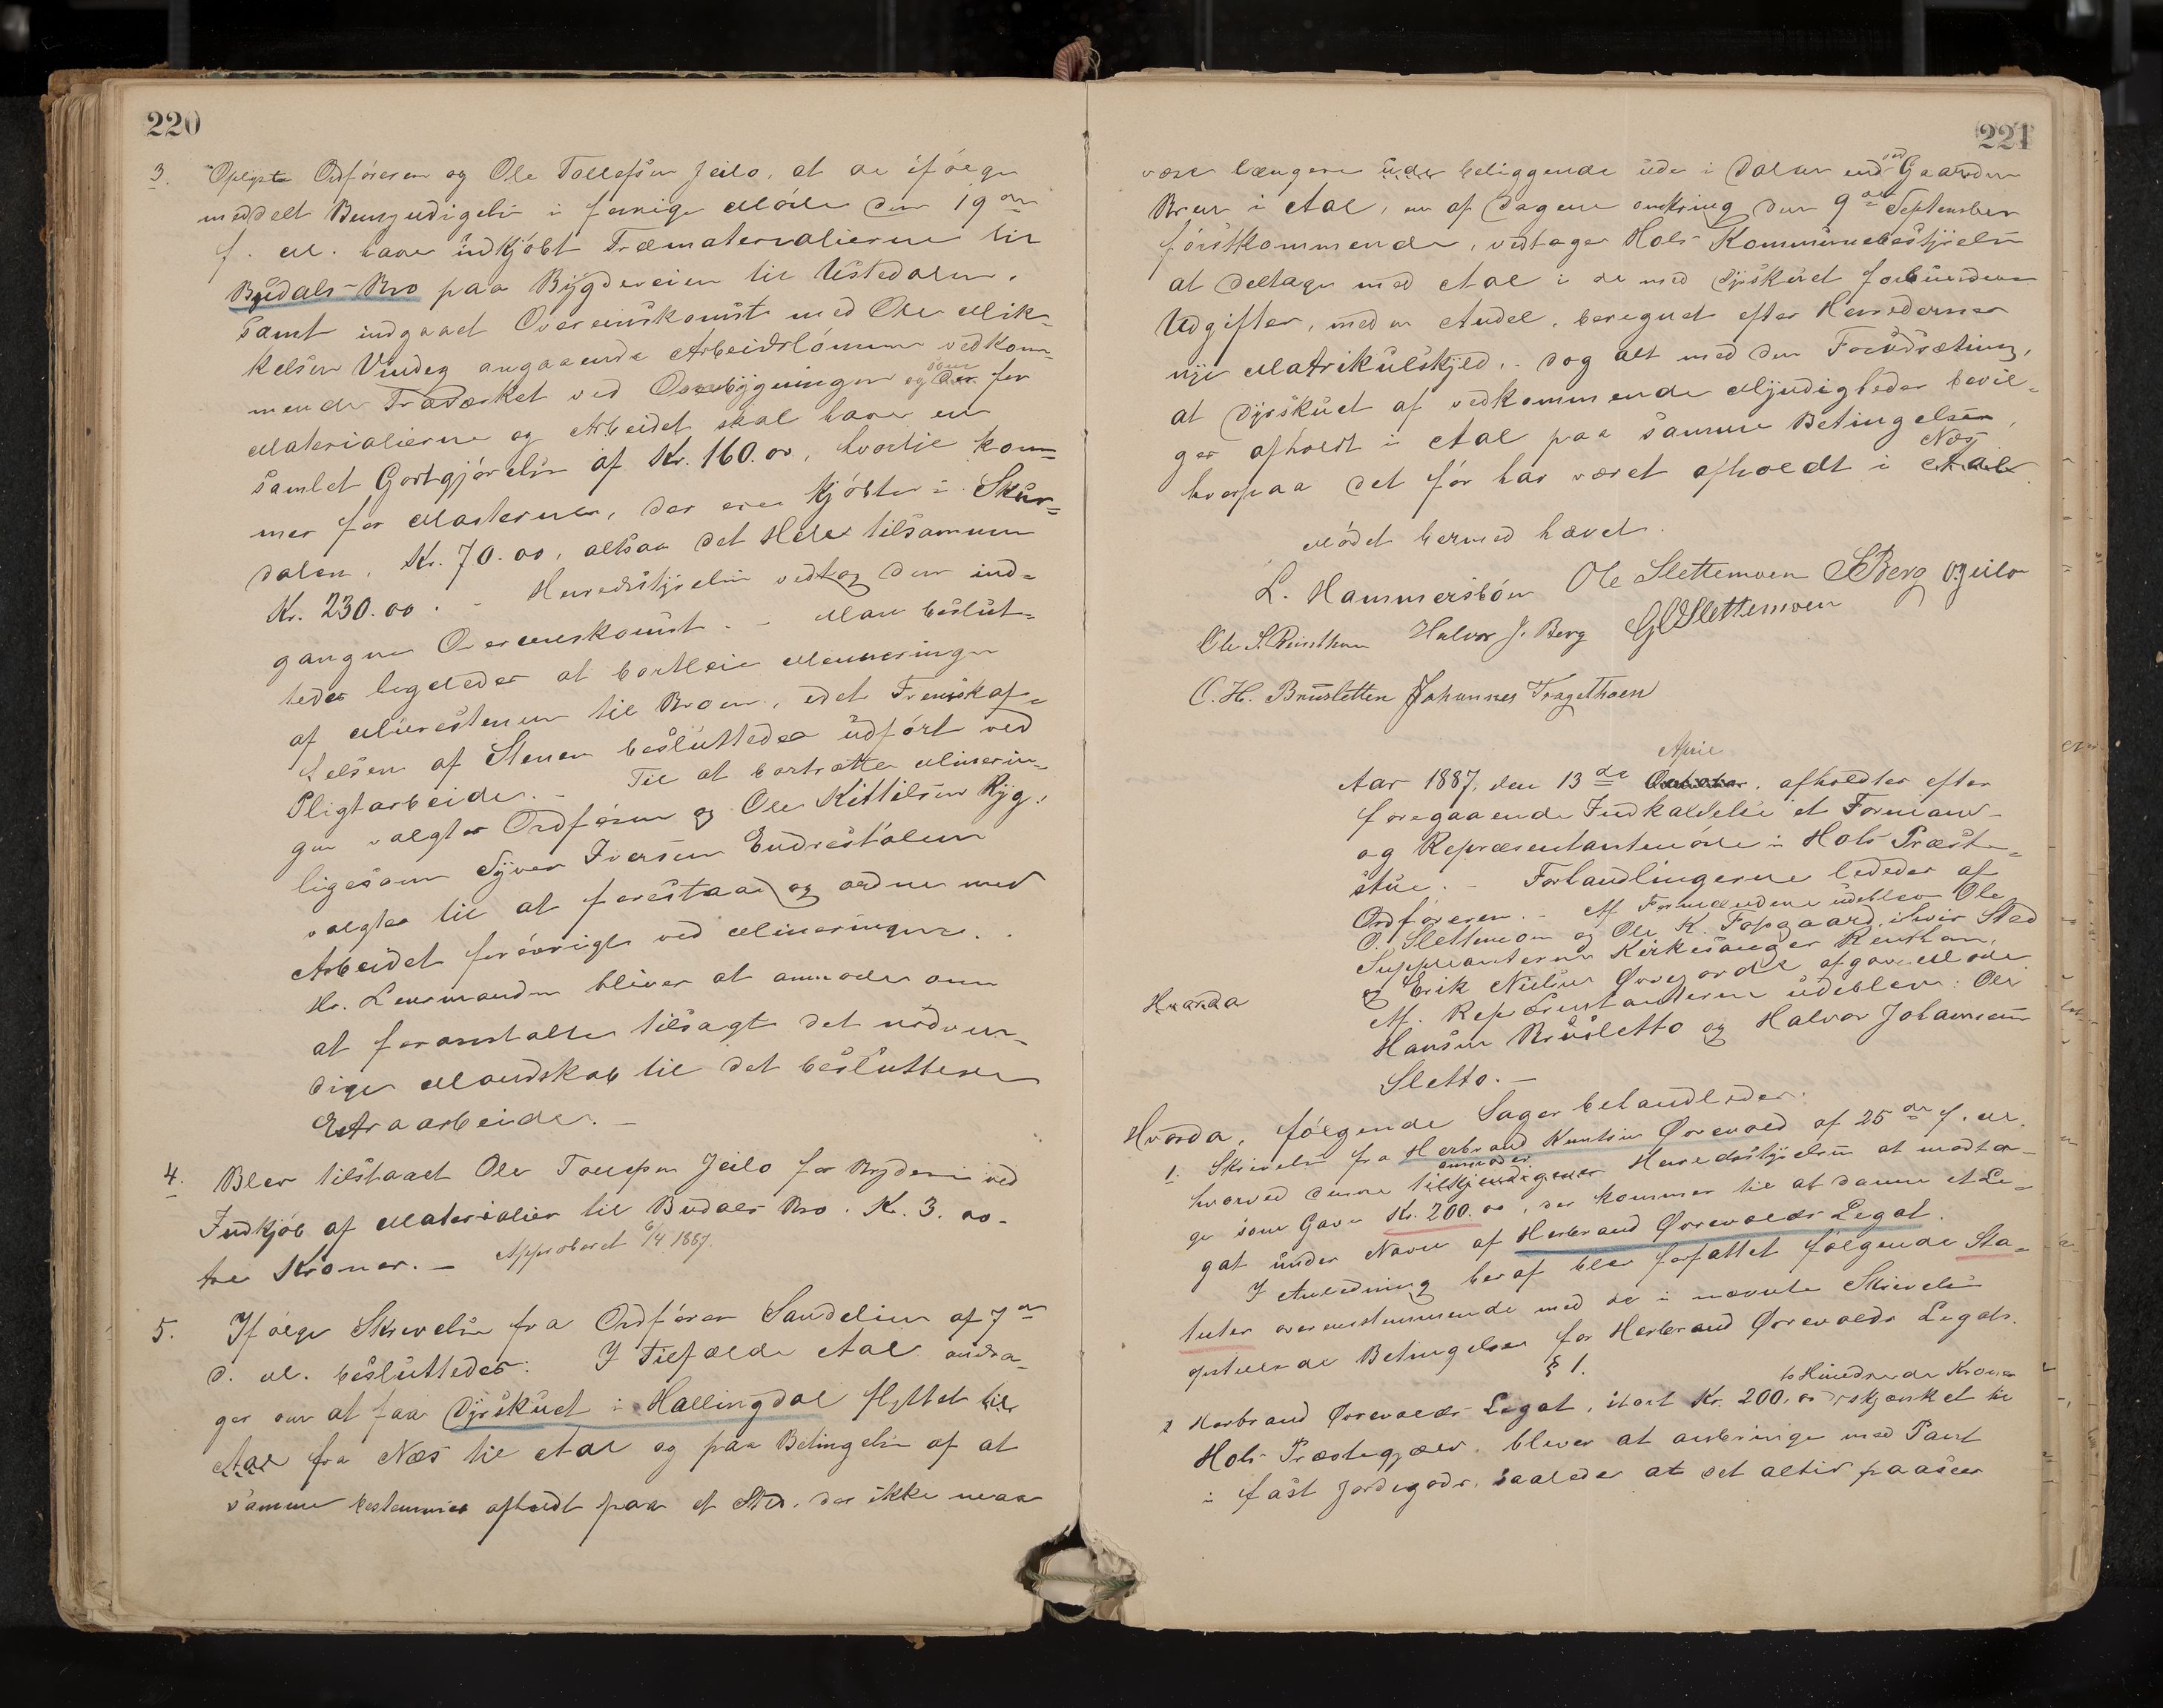 220
3. Oplyste Ordføreren og Ole Tollefsen Jeilo, at de ifølge
meddelt Bemyndigelse i forrige Møde den 19de
f. M. have indkjøbt Træmaterialierne til
Budals-Bro paa Bygdeveien til Ustedalen,
samt indgaaet Overenskomst med Ole Mik-
kelsen Vindeg angaaende Arbeidslønnen vedkom-
mende Træværket ved Overbygningen og som for
Materialierne og Arbeidet skal have en
samlet Godtgjørelse af Kr. 160.00, hvortil kom-
mer for Masterne, der ere kjøbte i Skur-
dalen, Kr. 70.00, altsaa det Hele tilsammen
Kr. 230.00. - Herredsstyrelsen vedtog den ind-
gangne Overenskomst. - Man beslut-
tedes ligeledes at bortleie Mureringen
af Murestenen til Broen, idet Fremskaf-
felsen af Stenen besluttedes udført ved
Pligtarbeide. - Til at bortsætte Murerin-
gen valgtes Ordføreren og Ole Kittilsen Ryg,
ligesom Syver Iversen Endrestølen
valgtes til at forestaa og ordne med
Arbeidet forøvrigt ved Mureringen. -
Hr. Lensmanden bliver at anmode om
at foranstalte tilsagt det nødven-
dige Mandskab til det besluttede
Extraarbeide. -
4. Blev tilstaaet Ole Tollefsen Jeilo for Bryderi ved
Indkjøb af Materialier til Budals Bro. Kr. 3.00-
tre Kroner. - Approberet 6/4 1887.
5. Ifølge Skrivelse fra Ordfører Sundelien af 7de
d. M. besluttedes: I Tilfælde Aal andra-
ger om at faa Dyrskuet i Hallingdal flyttet til
Aal fra Næs til Aal og paa Betingelse af at
samme bestemmes afholdt paa et Sted, der ikke maa
221
være længere ude beliggende ude i Dalen end ved Gaarden
Brun i Aal, en af Dagene omkring den 9de September
førstkommende, vedtager Hols Kommunebestyrelse
at deltage med Aal i de med Dyrskuet forbundne
Udgifter, med en Andel, beregnet efter Herredernes
nye Matrikulskyld, - dog alt med den Forudsætning,
at Dyrskuet af vedkommende Myndigheder bevil-
ges afholdt i Aal paa samme Betingelser,
hvorpaa det før har været afholdt i Aal Næs
Mødet hermed hævet.
L. Hammersbøn Ole Slettemoen S Berg O Jeilo
Ole S. Reinthon Halvor J. Berg G O Slettemoen
O. H. Brusletten Johannes Tragethoen
Aar 1887, den 13de October April, afholdtes efter
foregaaende Indkaldelse et Formand-
og Repræsentantmøde i Hols Præste-
stue. - Forhandlingerne lededes af
Ordføreren. - Af Formændene udeblev Ole
O. Slettemoen og Ole K. Fopgaard, i hvis Sted
Suppleanterne Kirkesanger Reinthon,
og Erik Nilsen Ørregarde afgav Mode
Af Repræsentanterne udeblev: Ole
Hansen Brusletto og Halvor Johannesen
Sletto. -
Hvorda
Hvorda, følgende Sager behandledes:
1. Skrivelse fra Herbrand Knutsen Ørrevold af 25de f. M.
hvorved denne tilkjendegiver anmoder Herredsstyrelsen at modta-
ge som Gave Kr. 200.00, der kommer til at danne et Le-
gat under Navn af Herbrand Ørrevolds Legat.
I Anledning heraf blev forfattet følgende Sta-
tuter overensstemmende med de i nævnte Skrivelse
opstillede Betingelser for Herbrand Ørrevolds Legat.
§ 1.
Herbrand Ørrevolds Legat, stort Kr. 200.00 to Hundrede Kroner skjænket til
Hols Præstegjæld, bliver at anbringe mod Pant
i fast Jordegods, saaledes at det altid paasees